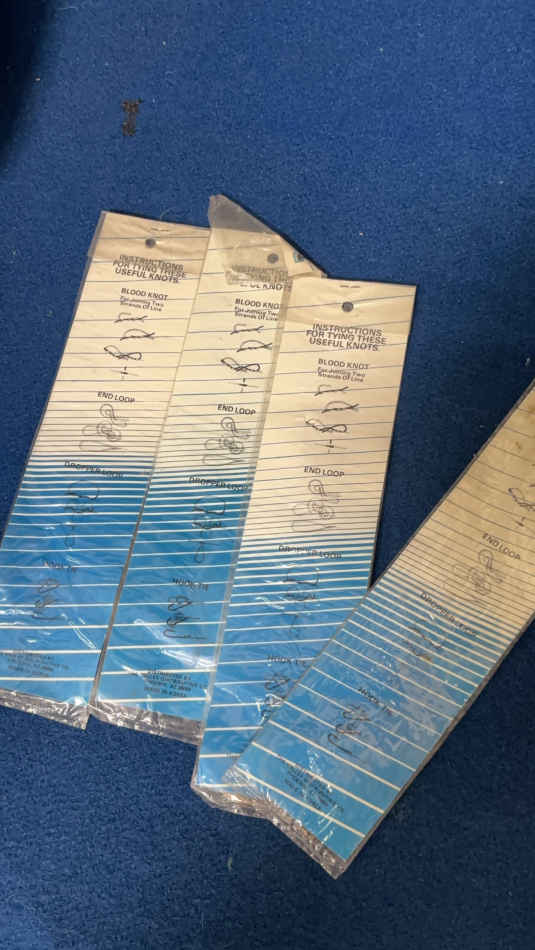 INSTRUCTIONS
FOR TYING THESE
USEFUL KNOTS.
BLOOD KNOT
For Joining Two
Strands Of Line
END LOOP
DROPPER LOOP
HOOK TIE
INSTRUCTIONS
FOR TYING THESE
USEFUL KNOTS
BLOOD KNOT
For Joining Two
Strands Of Line
END LOOP
DROPPER LOOP
HOOK TIE
INSTRUCTIONS
FOR TYING THESE
USEFUL KNOTS.
BLOOD KNOT
For Joining Two
Strands Of Line
END LOOP
DROPPER LOOP
HOOK TIE
END LOOP
DROPPER LOOP
HOOK TIE